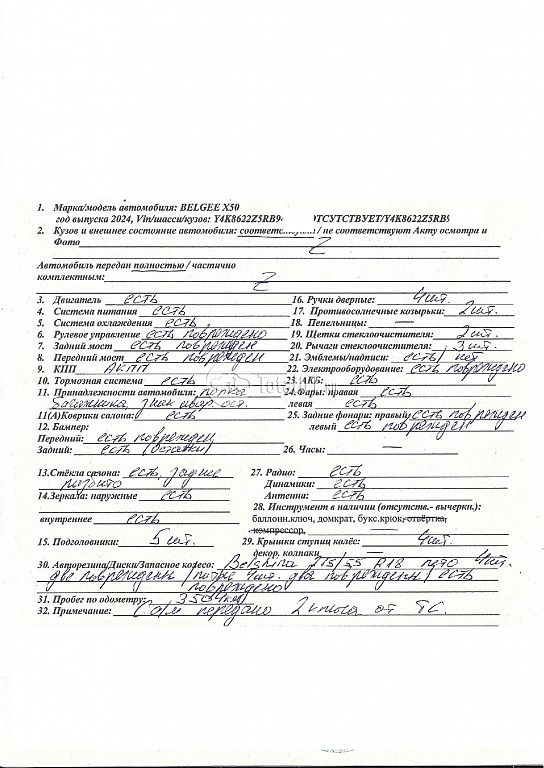 1. Марка/модель автомобиля: BELGEE X50
год выпуска 2024, Vin/шасси/кузов: Y4K8622Z5RB9 ОТСУТСТВУЕТ/Y4K8622Z5RB9
2. Кузов и внешнее состояние автомобиля: соответствуют / не соответствуют Акту осмотра и
Фото Z
Автомобиль передан полностью / частично
комплектным: Z
3. Двигатель есть
4. Система питания есть
5. Система охлаждения есть
6. Рулевое управление есть повреждено
7. Задний мост есть поврежден
8. Передний мост есть поврежден
9. КПП АКПП
10. Тормозная система есть
11. Принадлежности автомобиля: полка
багажника, знак авар. ост.
11(А)Коврики салона: есть
12. Бампер:
Передний: есть поврежден
Задний: есть (остатки)
13.Стёкла салона: есть, заднее
14.Зеркала: наружные есть
внутреннее есть
15. Подголовники: 5 шт.
16. Ручки дверные: 4шт.
17. Противосолнечные козырьки: 2шт.
18. Пепельницы: —
19. Щетки стеклоочистителя: 2шт.
20. Рычаги стеклоочистителя: 3шт.
21. Эмблемы/надписи: есть/ нет
22. Электрооборудование: есть повреждено
23. АКБ: есть
24.Фары: правая есть
левая есть
25. Задние фонари: правый есть поврежден
левый есть поврежден
26. Часы: —
27. Радио: есть
Динамики: есть
Антенна: есть
28. Инструмент в наличии (отсутств.- вычеркн.):
баллонн.ключ, домкрат, букс.крюк, отвёртка,
компрессор,
29. Крышки ступиц колёс: 4шт.
декор. колпаки —
30. Авторезина/Диски/Запасное колесо: Belshina 215/55 R18 лето 4шт.
две повреждены / литые 4шт. два повреждены / есть
повреждено
31. Пробег по одометру:
32. Примечание: С а/м передано 2 ключа от ТС.